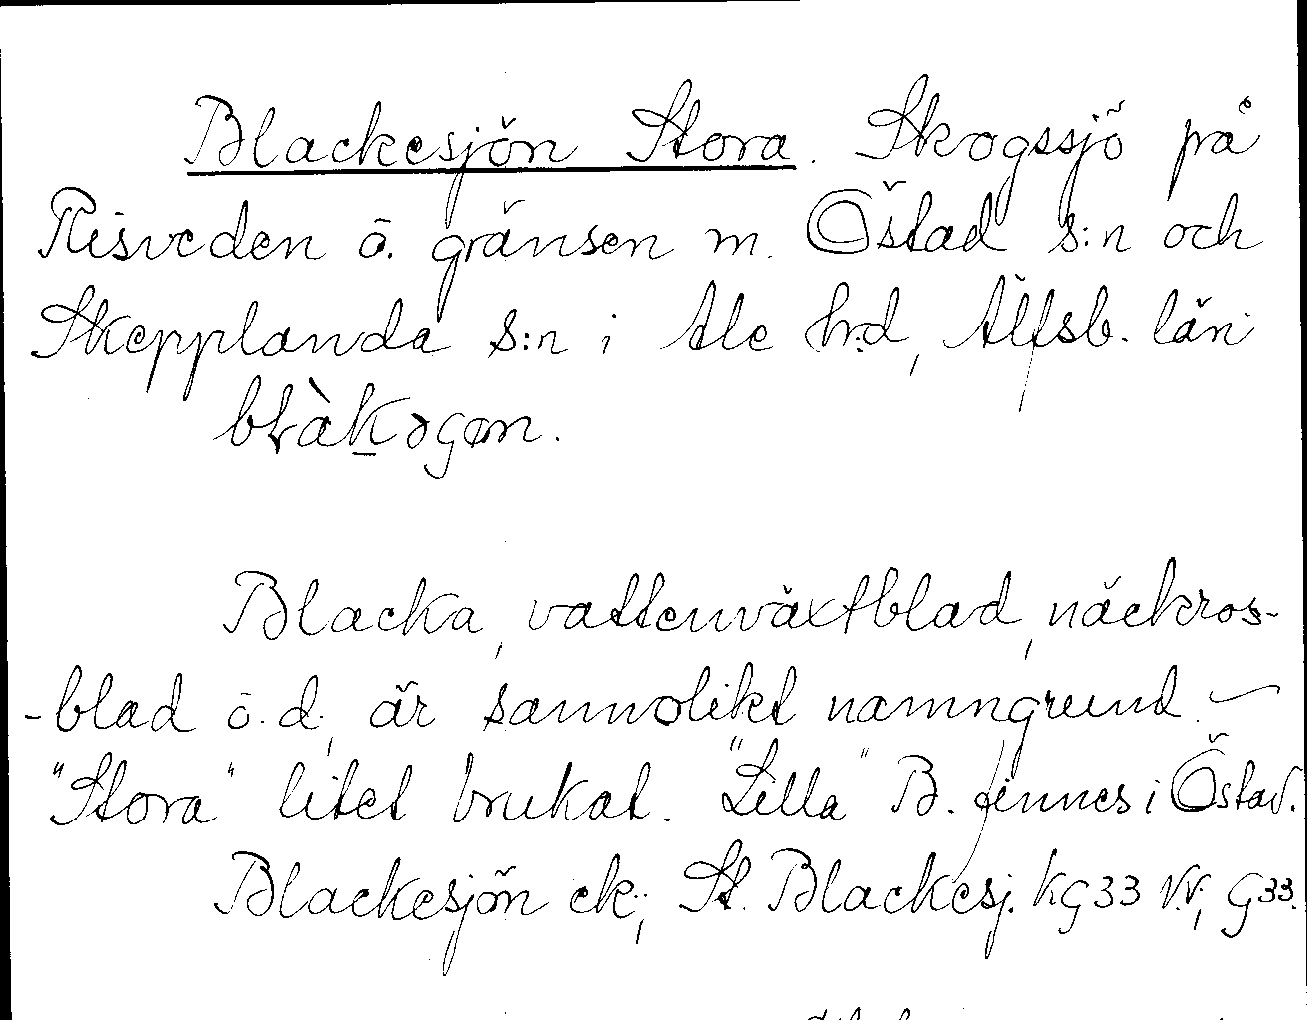 Blackesjön Stora. Skogssjö på
Risveden å gränsen m. Östad s:n och
Skepplanda s:n i Ale h:d, Älfsb. län
Blacka, vattenväxtblad, näckros-
-blad o.d., är sannolikt namngrund. –
"Stora" litet brukat. "Lilla" B. finnes i Östad.
Blackesjön ek; St. Blackesj. KG33 VV, G33.